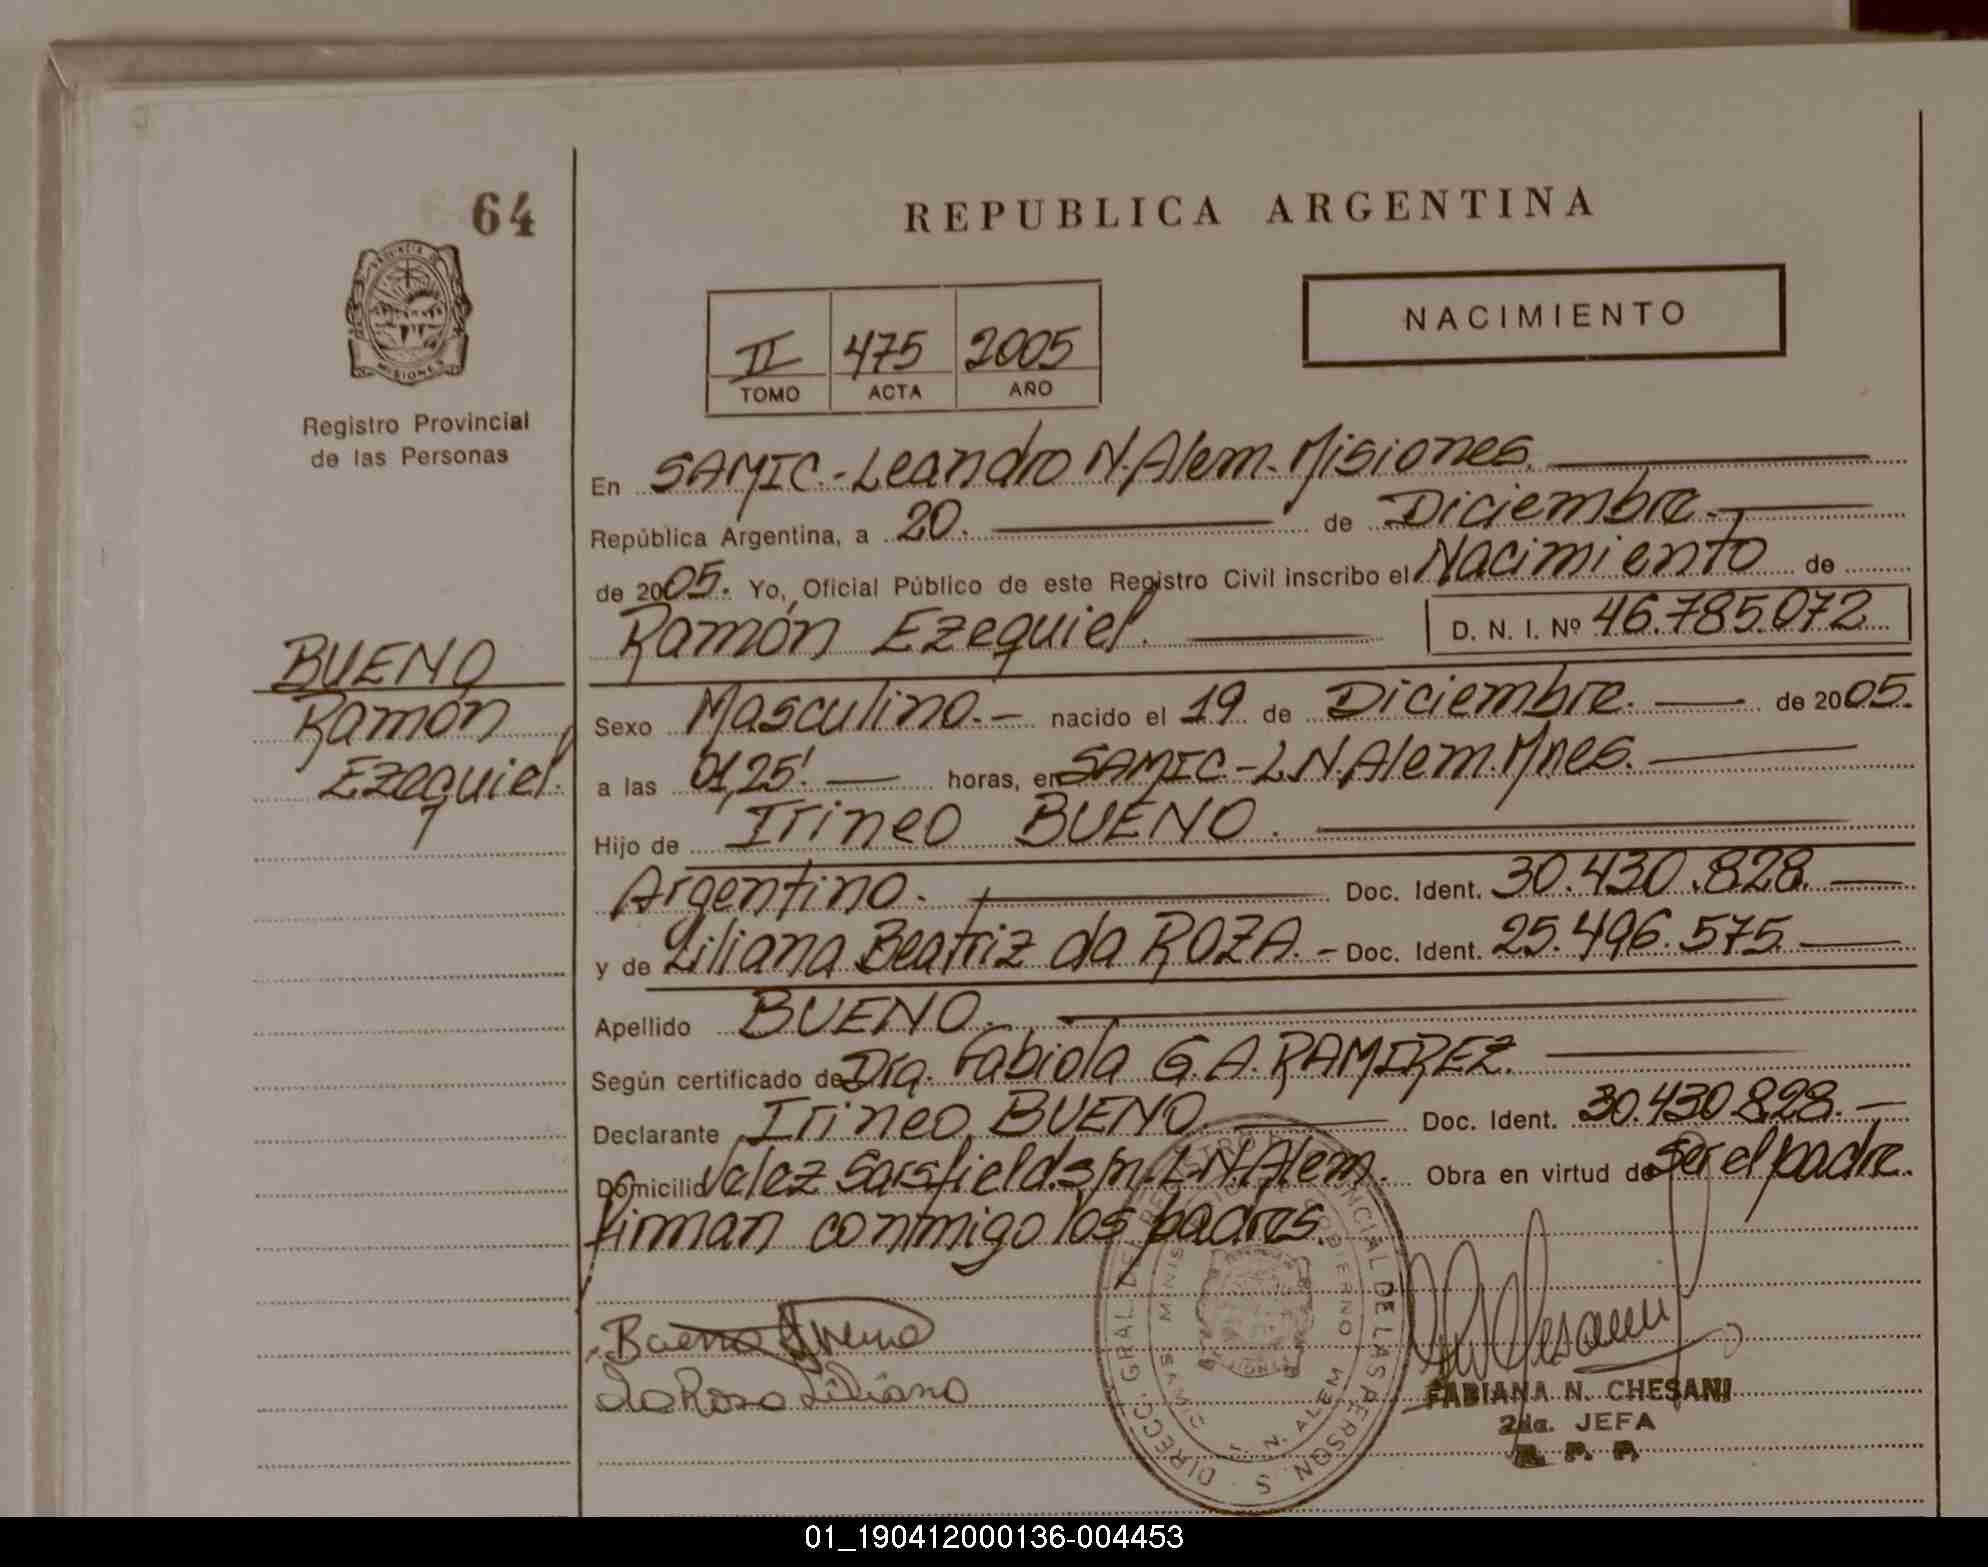 64
REPUBLICA ARGENTINA
PROVINCIA DE
MISIONES
NACIMIENTO
II 475 2005
TOMO ACTA AÑO
Registro Provincial
de las Personas
En SAMIC.-Leandro N. Alem. Misiones.
República Argentina, a 20. de Diciembre.
de 2005. Yo, Oficial Público de este Registro Civil inscribo el Nacimiento de
Ramón Ezequiel. D. N. I. Nº 46.785.072
BUENO
Ramón
Ezequiel.
Sexo Masculino.- nacido el 19 de Diciembre. de 2005.
a las 01,25'. horas, en SAMIC-L.N.Alem.Mnes.
Hijo de Irineo BUENO.
Argentino. Doc. Ident. 30.430.828.
y de Liliana Beatriz da ROZA.- Doc. Ident. 25.496.575
Apellido BUENO.
Según certificado de Dra. Fabiola G.A. RAMIREZ.
Declarante Irineo BUENO Doc. Ident. 30.430.828.-
Domicilio Velez Sarsfield.s/n.L.N.Alem. Obra en virtud de Ser el padre.
Firman conmigo los padres.
Bueno Irineo
da Rosa Liliana
DIRECC. GRAL. DE REGISTRO PROVINCIAL DE LAS PERSONAS
L. N. ALEM
FABIANA N. CHESANI
2da. JEFA
R. P. P.
01_190412000136-004453